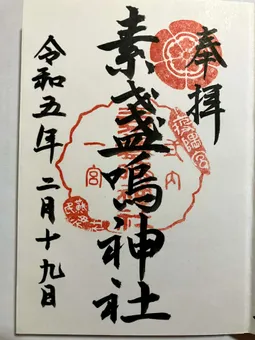 奉拝
素盞嗚神社
令和五年二月十九日
一宮